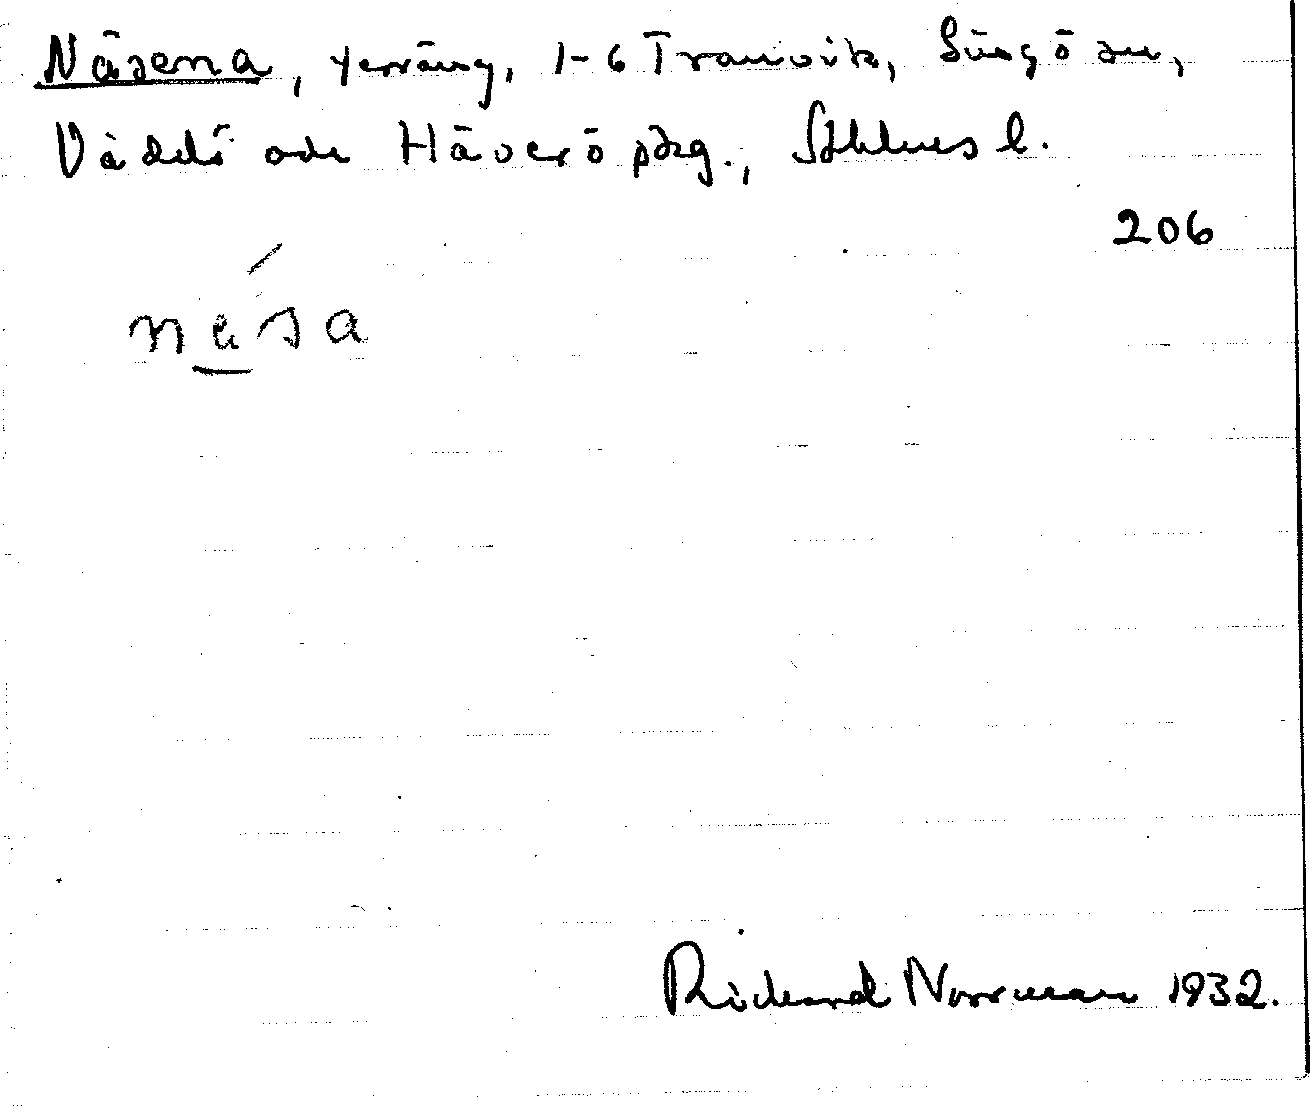 Näsena, terräng, 1-6 Tranvik, Singö sn,
Väddö och Häverö skg., Sthlms l.
206
näsa
Richard Norrman 1932.